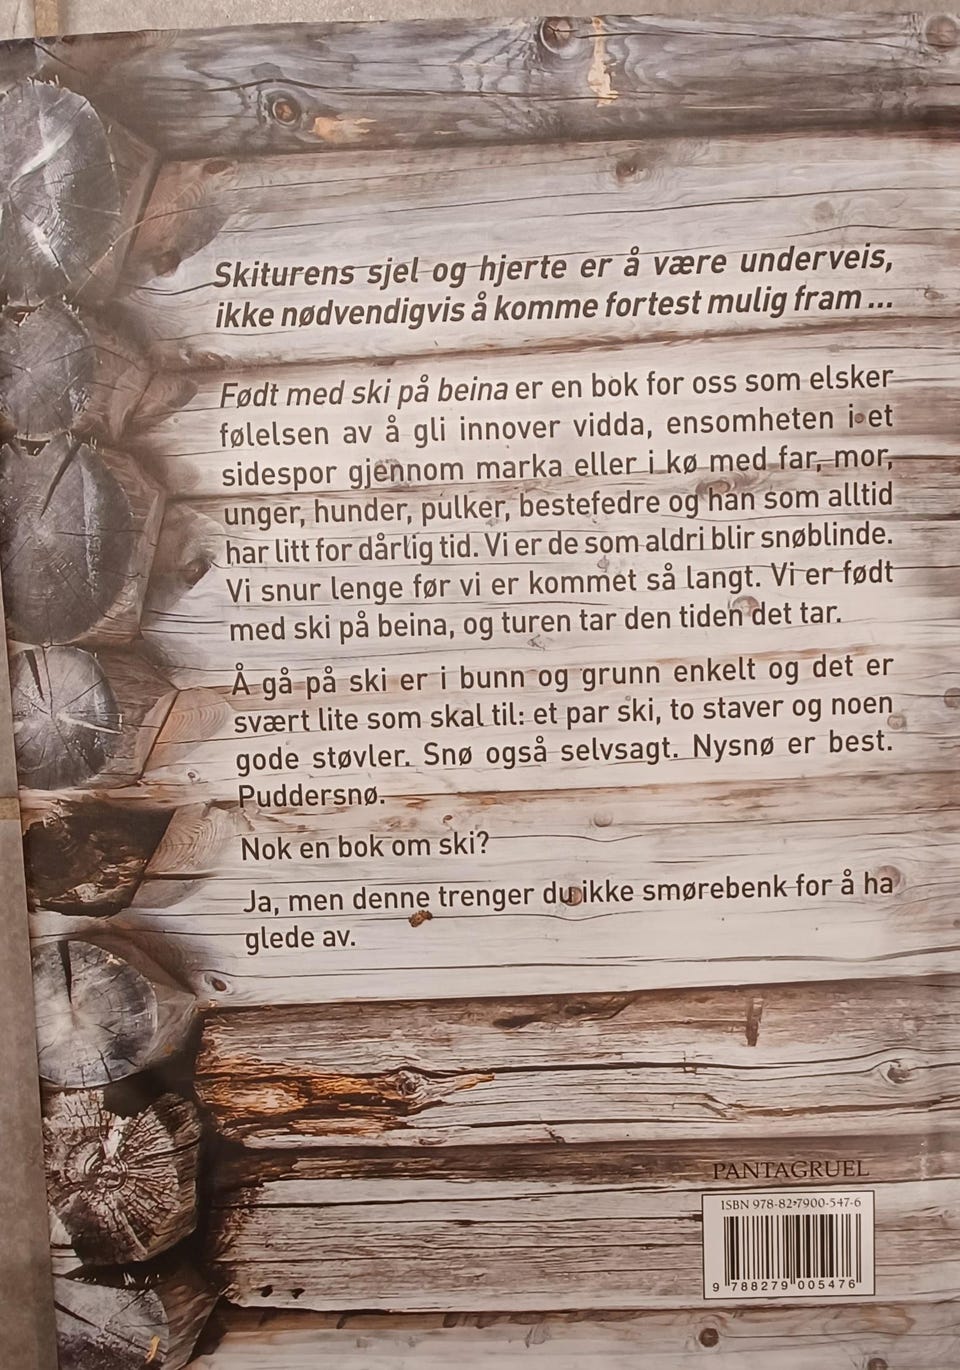 Skiturens sjel og hjerte er å være underveis,
ikke nødvendigvis å komme fortest mulig fram ...
Født med ski på beina er en bok for oss som elsker
følelsen av å gli innover vidda, ensomheten i et
sidespor gjennom marka eller i kø med far, mor,
unger, hunder, pulker, bestefedre og han som alltid
har litt for dårlig tid. Vi er de som aldri blir snøblinde.
Vi snur lenge før vi er kommet så langt. Vi er født
med ski på beina, og turen tar den tiden det tar.
Å gå på ski er i bunn og grunn enkelt og det er
svært lite som skal til: et par ski, to staver og noen
gode støvler. Snø også selvsagt. Nysnø er best.
Puddersnø.
Nok en bok om ski?
Ja, men denne trenger du ikke smørebenk for å ha
glede av.
PANTAGRUEL
ISBN 978-82-7900-547-6
9 788279 005476